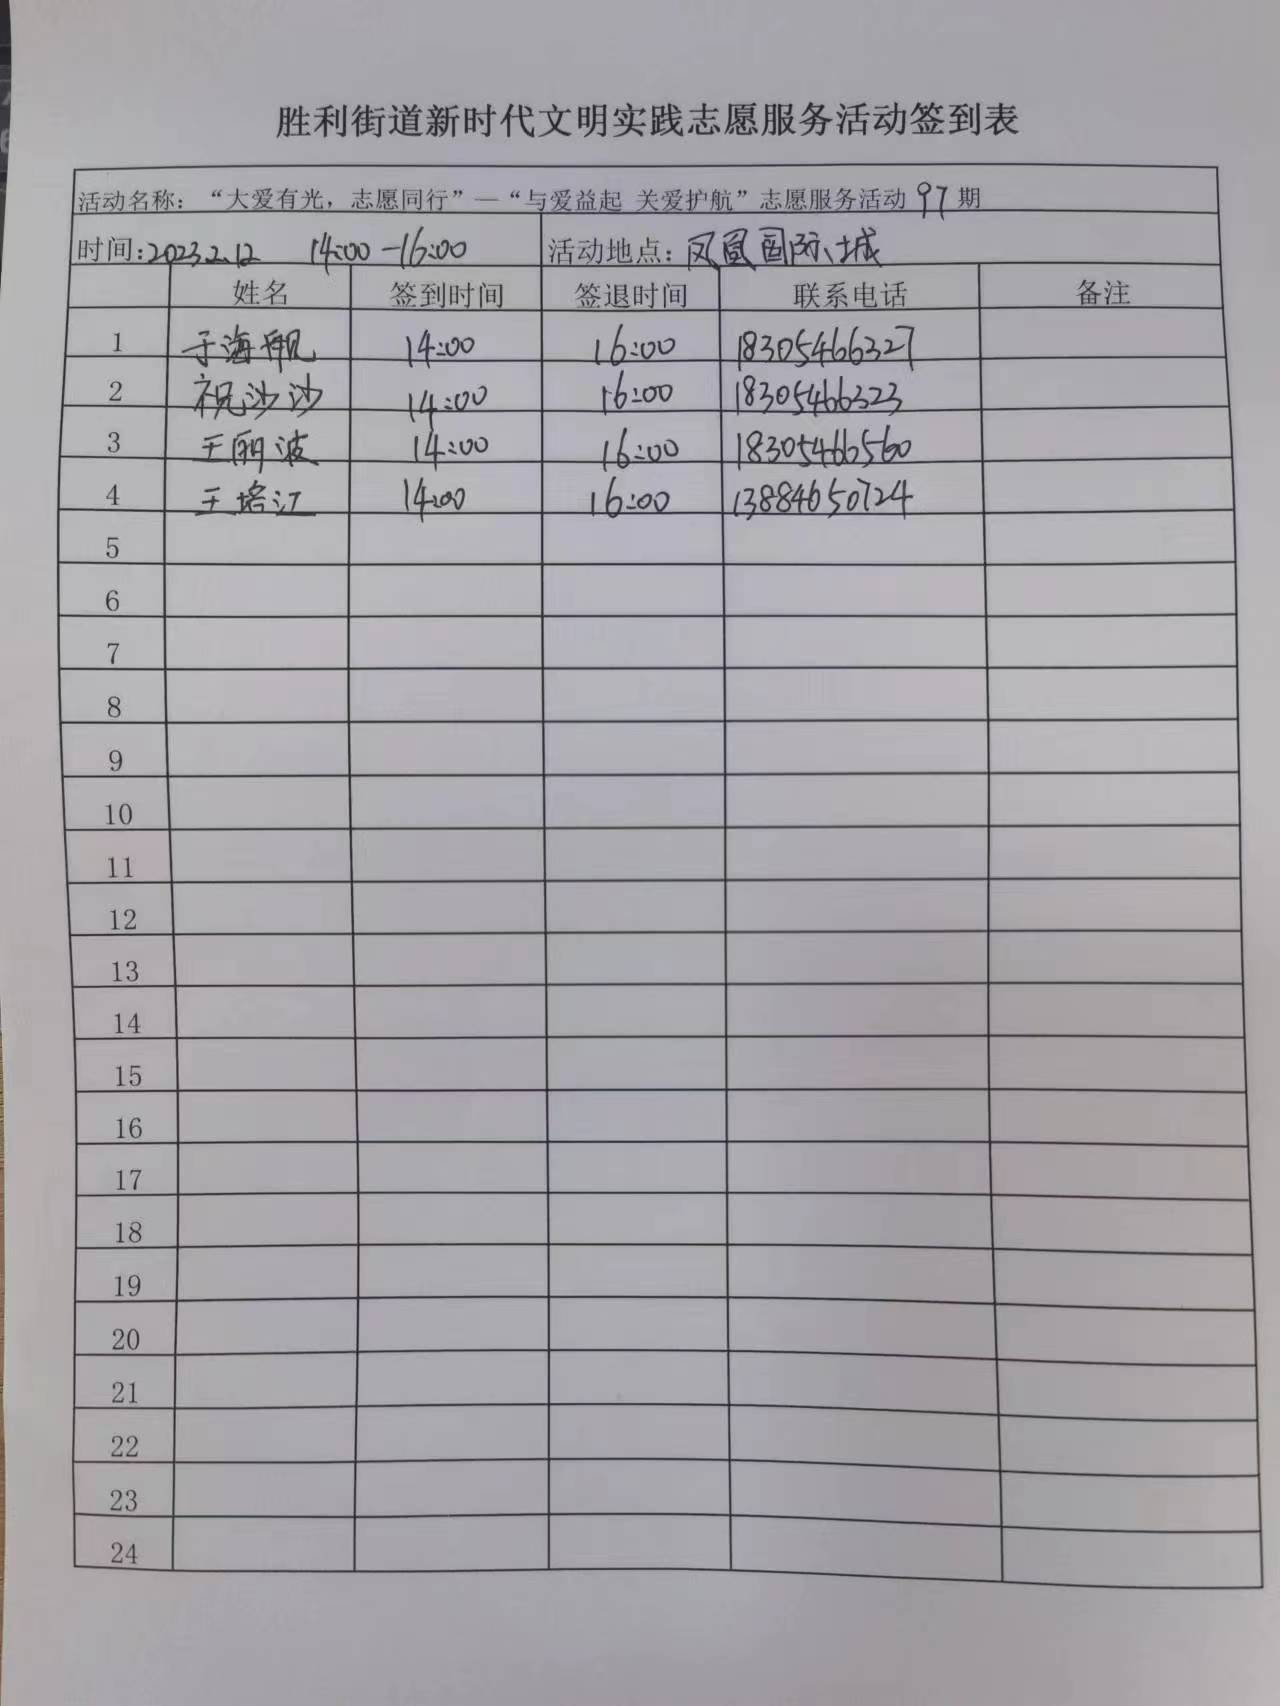 胜利街道新时代文明实践志愿服务活动签到表
活动名称：“大爱有光，志愿同行”—“与爱益起 关爱护航”志愿服务活动 97 期
时间：2023.2.12 14:00-16:00 活动地点：凤凰国际城
姓名 签到时间 签退时间 联系电话 备注
1 于海帆 14:00 16:00 18305466327
2 祝沙沙 14:00 16:00 18305466323
3 王丽波 14:00 16:00 18305466560
4 王培江 14:00 16:00 13884650724
5
6
7
8
9
10
11
12
13
14
15
16
17
18
19
20
21
22
23
24